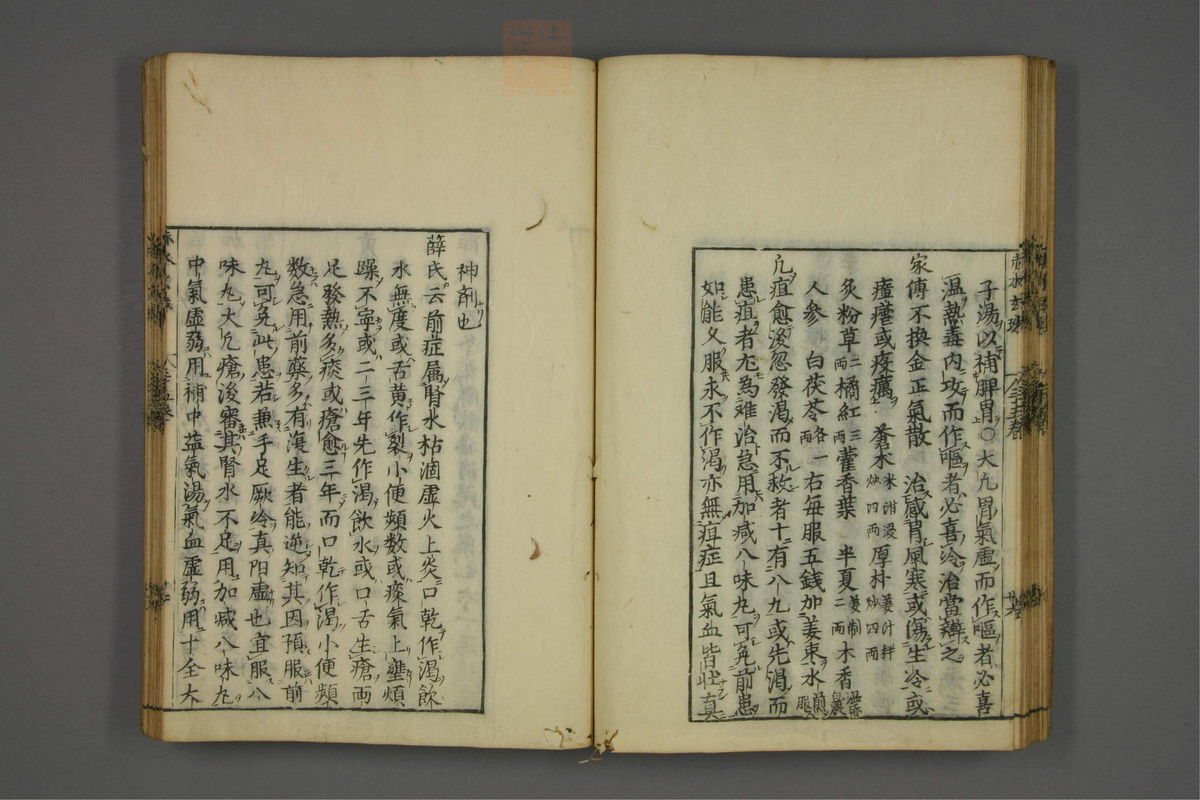 子湯以補脾胃○大凢胃氣虛而作嘔者必喜
温熱毒内攻而作嘔者必喜冷治當辯之
家傳不換金正氣散 治感胃風寒或傷生冷或
瘧或疫癘 蒼朮米泔浸炒四兩厚朴姜汁拌炒四兩
炙粉草二兩橘紅三兩藿香葉 半夏姜制二兩木香
人參 白茯苓各一兩右每服五錢加姜枣水煎服
凢疽愈後忽發渴而不救者十有八九或先渴而
患疽者尤為难治急用加减八味丸可免前患
如能久服永不作渴亦無疽症且氣血皆壯真
神剤也
薛氏云前症属腎水枯涸虛火上炎口乾作渴飲
水無度或舌黄作裂小便頻數或痰氣上壅煩
躁不寧或二三年先作渴飲水或口舌生瘡兩
足發熱多痰或瘡愈三年而口乾作渴小便頻
数急用前藥多有復生者能逆知其因預服前
丸可免此患若兼手足厥冷真阳虛也宜服八
味丸大凢瘡後審其腎水不足用加减八味丸
中氣虛弱用補中益氣湯氣血虛弱用十全大